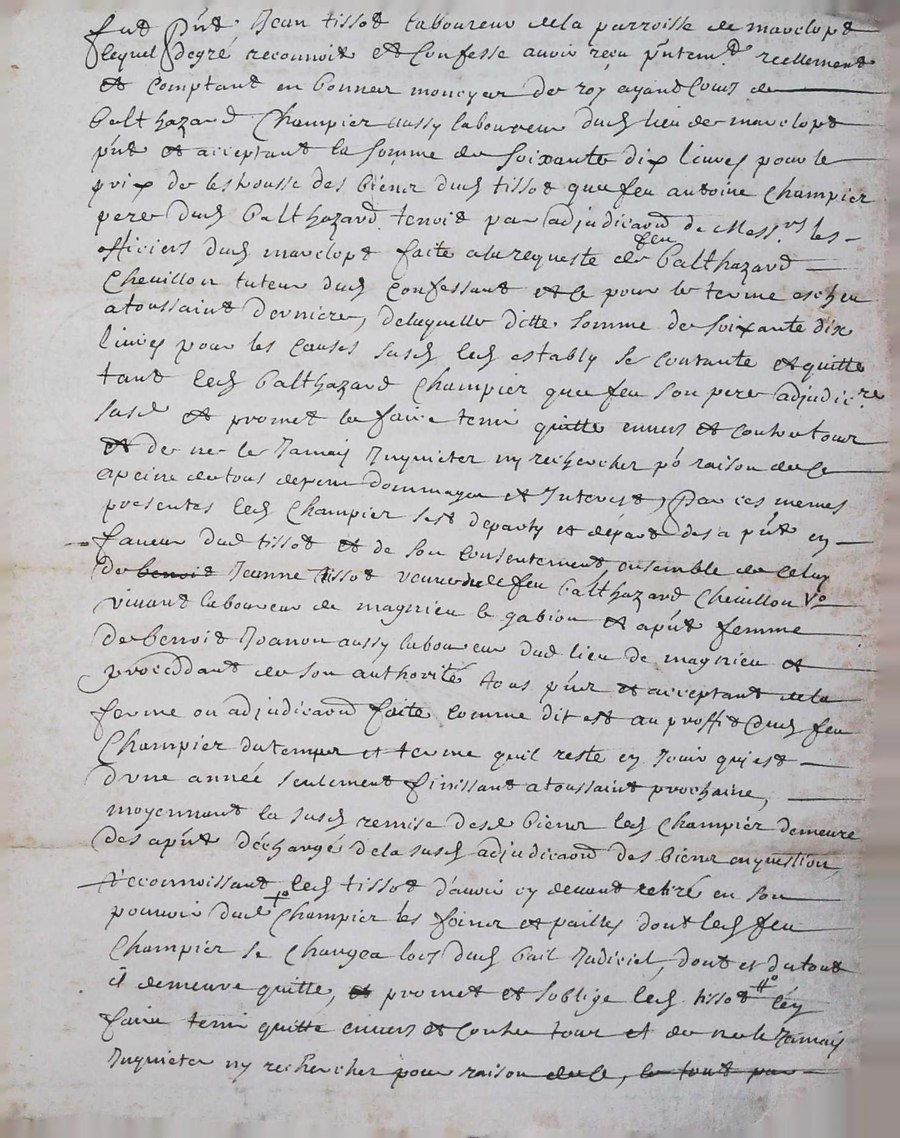 fut pñt Jean tissot laboureur de la parroisse de marclopt
lequel degré reconnoit et Confesse avoir reçu pñtemt. reellement
et comptant en bonnes monoyes de roy ayant Cours de
balthazard Champier aussy laboureur dud. lieu de marclopt
pñt et acceptant la somme de soixante dix livres pour le
prix de des biens dud. tissot que feu antoine Champier
pere dud. balthazard tenoit par adjudicaõn de Messrs. les
officiers dud. marclopt faite a la requeste de feu balthazard
Chevillon tuteur dud. Confessant et ce pour le terme escheu
a toussaint derniere, de laquelle ditte somme de soixante dix
livres pour les causes susd. led. estably se contante et quitte
tant led. balthazard Champier que feu son pere adjudicre.
susd. et promet le faire tenir quitte envers et contre tous
et de ne le Jamais Inquieter ny rechercher po. raison de ce
a peine de tous depens dommages et Interest, Par ces memes
presentes led. Champier s'est departy et depart des a pñt en
faveur dud. tissot et de son consentement ensemble de celuy
de benoit Jeanne tissot veuve de feu balthazard Chevillon Vo
vivant laboureur de magnieu le gabion et apñt femme
de benoit Joanon aussy laboureur dud. lieu de magnieu et
proceddant de son authorité tous pñts et acceptant de la
ferme ou adjudicaõn faite comme dit est au proffit dud. feu
Champier du temps et terme quil reste en Jouir qui est
d'une année seulement finissant a toussaint prochaine,
moyennant la susd. remise desd. biens led. Champier demeure
des apñt déchargé de la susd. adjudicaõn des biens en question,
reconnoissant led. tissot d'avoir cy devant retiré en son
pouvoir dud. Champier les foins et pailles dont led. feu
Champier se chargea lors dud. bail Judiciel, dont et du tout
il demeure quitte, et promet et s'oblige led. tissot l'en
faire tenir quitte envers et contre tous et de ne le Jamais
Inquieter ny rechercher pour raison de ce, le tout par